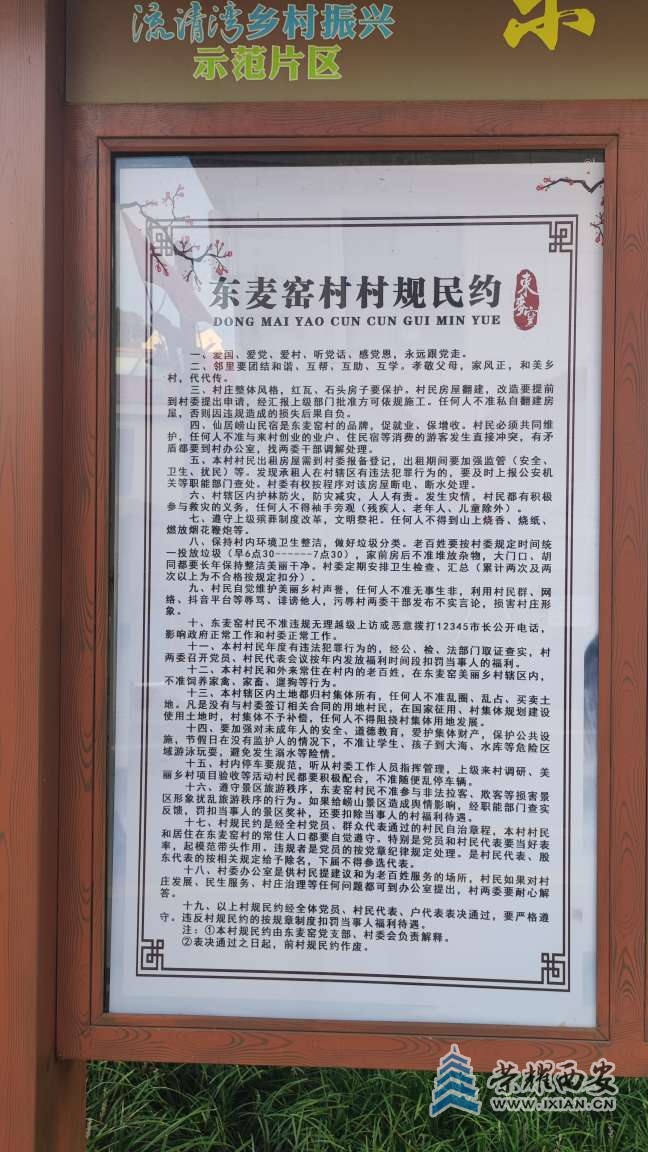 流清湾乡村振兴
示范片区
东麦窑村村规民约
東麥窑
DONG MAI YAO CUN CUN GUI MIN YUE
一、爱国、爱党、爱村、听党话、感党恩，永远跟党走。
二、邻里要团结和谐、互帮、互助、互学。孝敬父母，家风正，和美乡
村，代代传。
三、村庄整体风格，红瓦、石头房子要保护。村民房屋翻建，改造要提前
到村委提出申请，经汇报上级部门批准方可依规施工。任何人不准私自翻建房
屋，否则因违规造成的损失后果自负。
四、仙居崂山民宿是东麦窑村的品牌，促就业、保增收。村民必须共同维
护，任何人不准与来村创业的业户、住民宿等消费的游客发生直接冲突，有矛
盾都要到村办公室，找两委干部调解处理。
五、本村村民出租房屋需到村委报备登记，出租期间要加强监管（安全、
卫生、扰民）等。发现承租人在村辖区有违法犯罪行为的，要及时上报公安机
关等职能部门查处。村委有权按程序对该房屋断电、断水处理。
六、村辖区内护林防火，防灾减灾，人人有责。发生灾情，村民都有积极
参与救灾的义务，任何人不得袖手旁观（残疾人、老年人、儿童除外）。
七、遵守上级殡葬制度改革，文明祭祀。任何人不得到山上烧香、烧纸、
燃放烟花鞭炮等。
八、保持村内环境卫生整洁，做好垃圾分类。老百姓要按村委规定时间统
一投放垃圾（早6点30------7点30），家前房后不准堆放杂物，大门口、胡
同都要长年保持整洁美丽干净。村委定期安排卫生检查、汇总（累计两次及两
次以上为不合格按规定扣分）。
九、村民自觉维护美丽乡村声誉，任何人不准无事生非，利用村民群、网
络、抖音平台等辱骂、诽谤他人，污辱村两委干部发布不实言论，损害村庄形
象。
十、东麦窑村民不准违规无理越级上访或恶意拨打12345市长公开电话，
影响政府正常工作和村委正常工作。
十一、本村村民年度有违法犯罪行为的，经公、检、法部门取证查实，村
两委召开党员、村民代表会议按年内发放福利时间段扣罚当事人的福利。
十二、本村村民和外来常住在村内的老百姓，在东麦窑美丽乡村辖区内，
不准饲养家禽、家畜、遛狗等行为。
十三、本村辖区内土地都归村集体所有，任何人不准乱圈、乱占、买卖土
地。凡是没有与村委签订相关合同的用地村民，在国家征用、村集体规划建设
使用土地时，村集体不予补偿，任何人不得阻挠村集体用地发展。
十四、要加强对未成年人的安全、道德教育，爱护集体财产，保护公共设
施，节假日在没有监护人的情况下，不准让学生、孩子到大海、水库等危险区
域游泳玩耍，避免发生溺水等险情。
十五、村内停车要规范，听从村委工作人员指挥管理，上级来村调研、美
丽乡村项目验收等活动村民都要积极配合，不准随便乱停车辆。
十六、遵守景区旅游秩序，东麦窑村民不准参与非法拉客、欺客等损害景
区形象扰乱旅游秩序的行为。如果给崂山景区造成舆情影响，经职能部门查实
反馈，罚扣当事人的景区奖补，还要扣除当事人的村福利待遇。
十七、村规民约是经全村党员、群众代表通过的村民自治章程，本村村民
和居住在东麦窑村的常住人口都要自觉遵守。特别是党员和村民代表要当好表
率，起模范带头作用。违规者是党员的按党章纪律规定处理。是村民代表、股
东代表的按相关规定给予除名，下届不得参选代表。
十八、村委办公室是供村民提建议和为老百姓服务的场所，村民如果对村
庄发展、民生服务、村庄治理等任何问题都可到办公室提出，村两委要耐心解
答。
十九、以上村规民约经全体党员、村民代表、户代表表决通过，要严格遵
守。违反村规民约的按规章制度扣罚当事人福利待遇。
注：①本村规民约由东麦窑党支部、村委会负责解释。
②表决通过之日起，前村规民约作废。
荣耀西安
WWW.IXIAN.CN